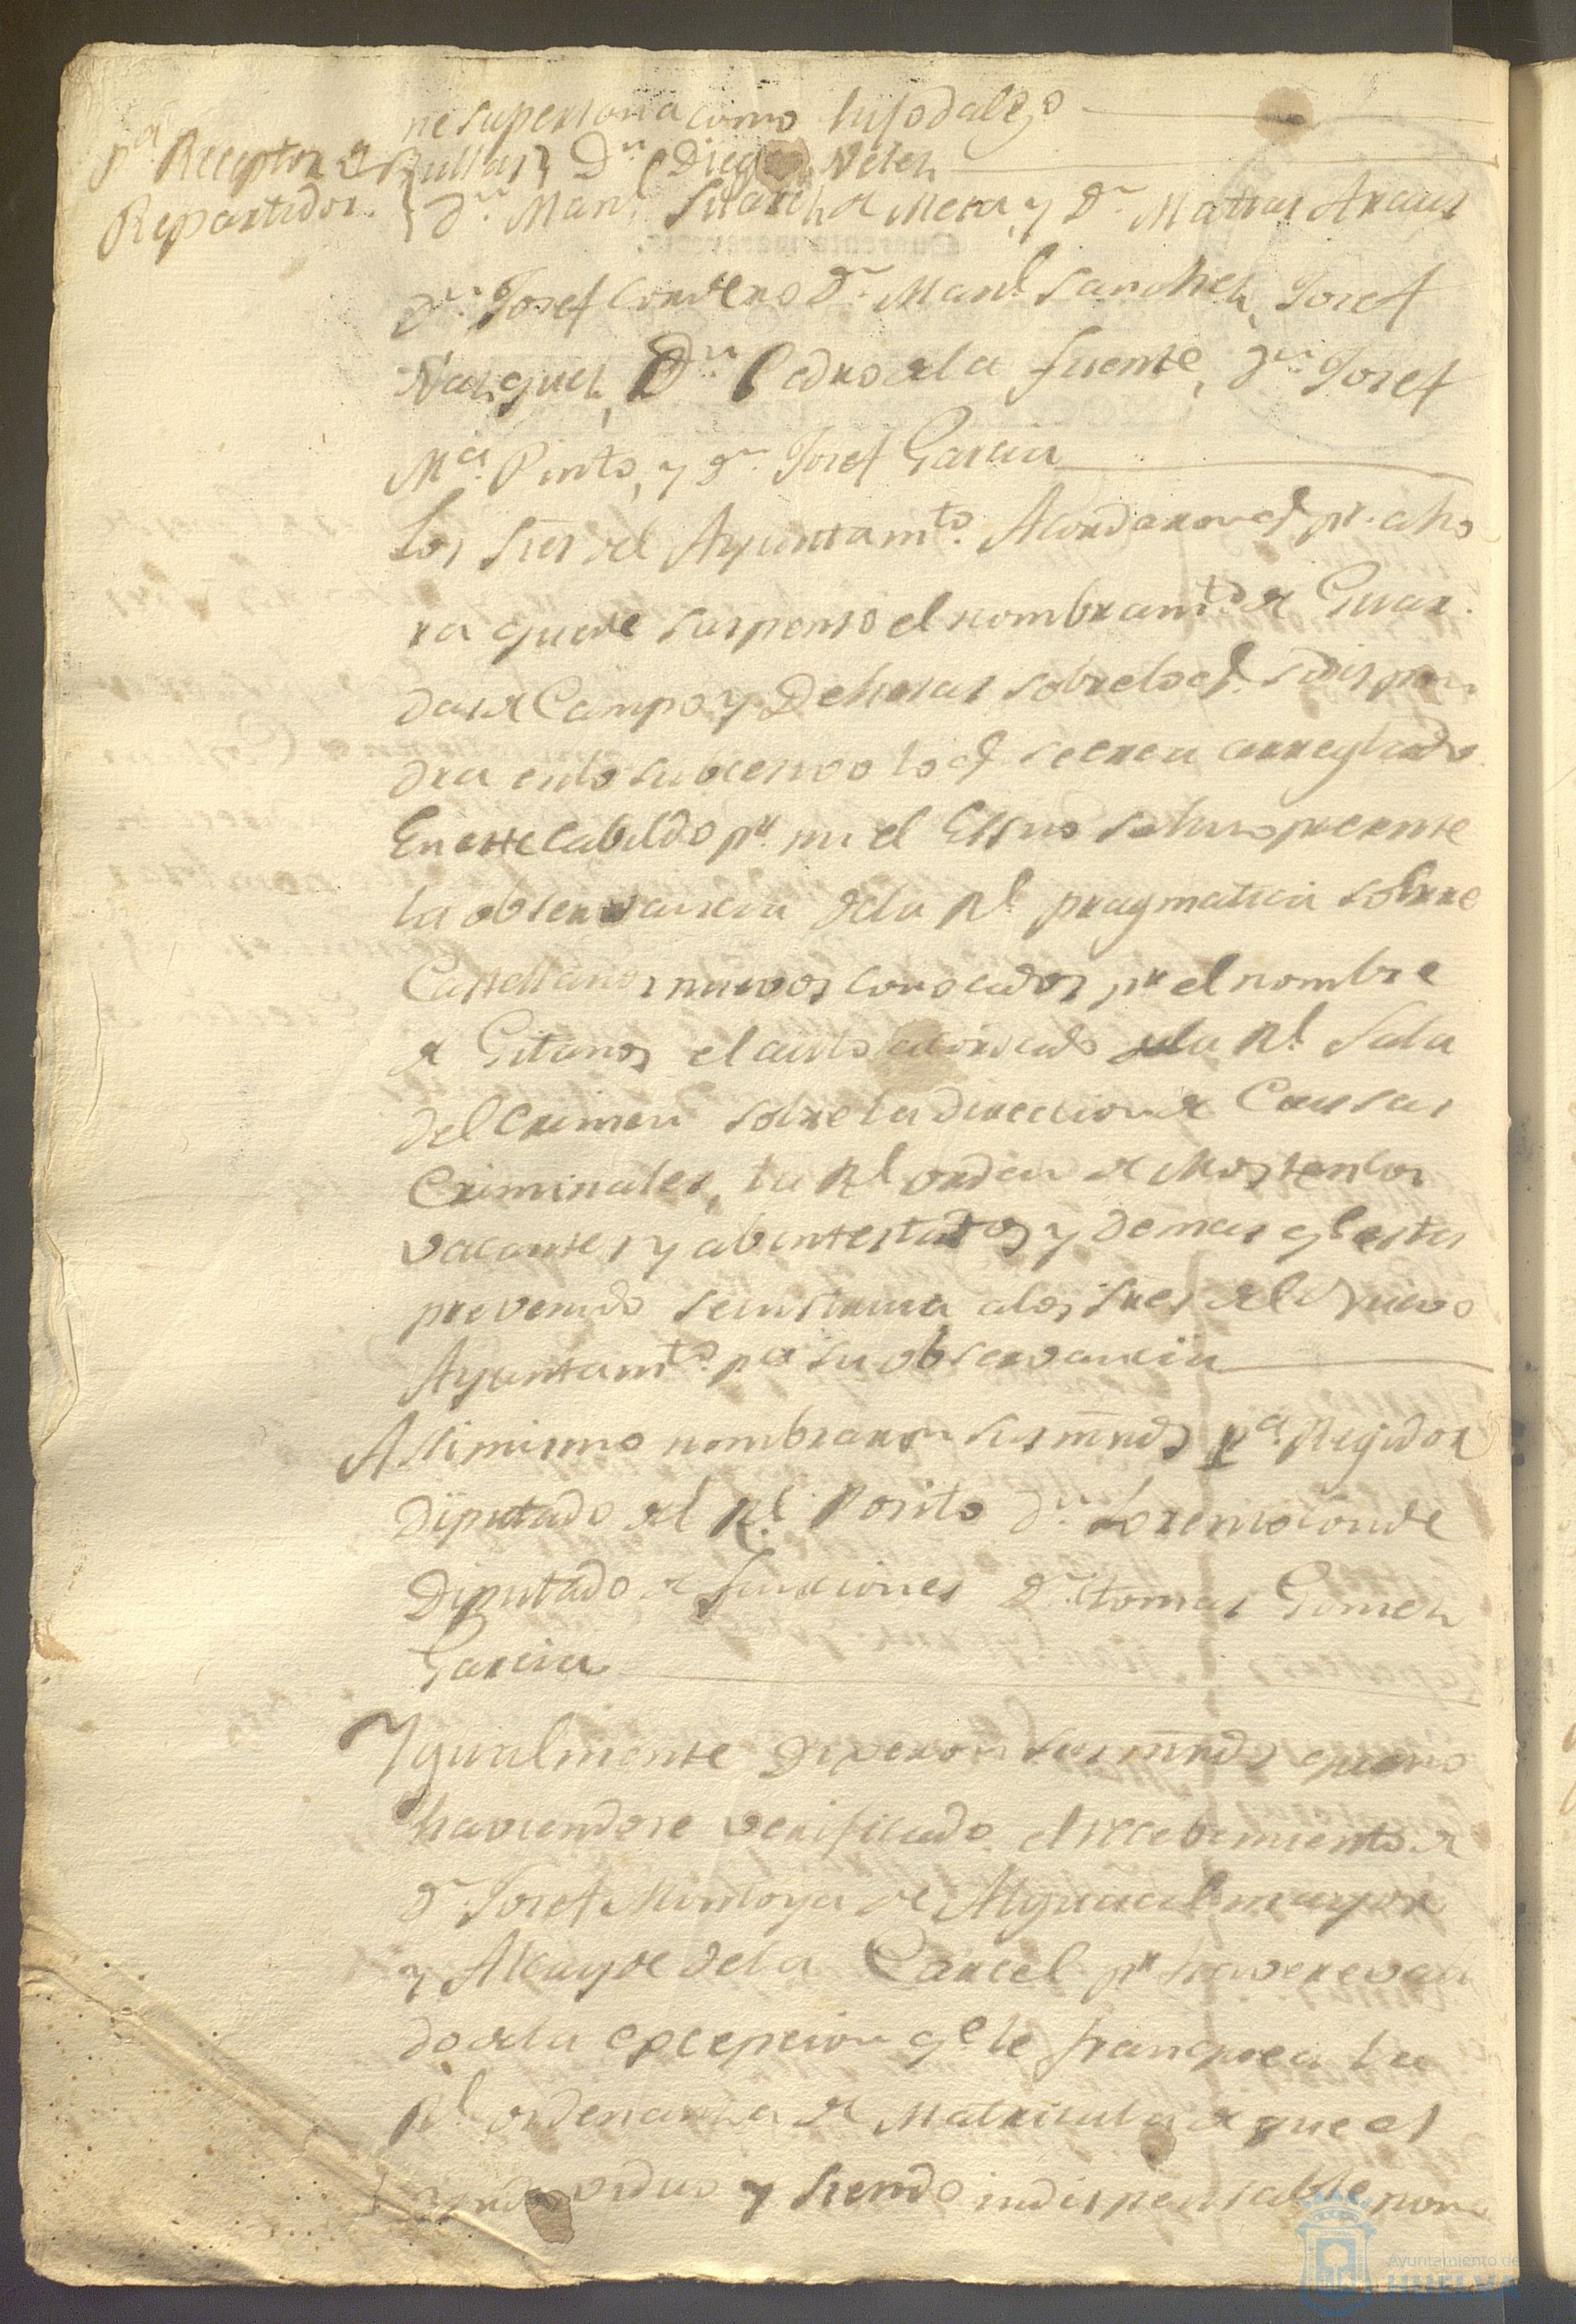 ne su persona como hijodalgo
Pª Receptor de Bullas D.n Diego Velez
Repartidor. D.n Man.l Suarez de Mera, y D.n Matias Araus
D.n Josef Cordero D.n Man.l Sanchez, Josef
Vazquez, D.n Pedro de la fuente, D.n Josef
M.ª Pinto, y D.n Josef Garcia
Los Sres del Ayuntam.to Acordaron q.e p.r aho
ra quede suspenso el nombram.to de Guar
das de Campo y Dehesas sobre lo q.e se dispon
dra en lo subcesivo lo q.e se crea arreglado
En este Cabildo p.r mi el Essno se hizo presente
la observancia de la R.l pragmatica sobre
Castellanos nuevos conocidos p.r el nombre
de Gitanos el auto acordado de la R.l Sala
del Crimen sobre la direccion de Causas
Criminales, la R.l orden de Mostencos
vacantes y abintestatos y demas q.e esta
prevenido se instruia a los Sres del Nuevo
Ayuntam.to p.ª su observancia
Assimismo nombraron sus mrds p.ª Regidor
Diputado del R.l Posito D.n Lorenzo Conde
Diputado de funciones D.n Tomas Gomez
Garcia
Ygualmente Dixeron sus mrds que no
haviendose verificado el recebimiento de
D.n Josef Montoya de Alguacil mayor
y Alcayde de la Carcel p.r haverse vali
do de la excepcion q.e le franquea la
R.l ordenanza de Matricula de que es
yndividuo y siendo indispensable nom
Ayuntamiento de
HUELVA